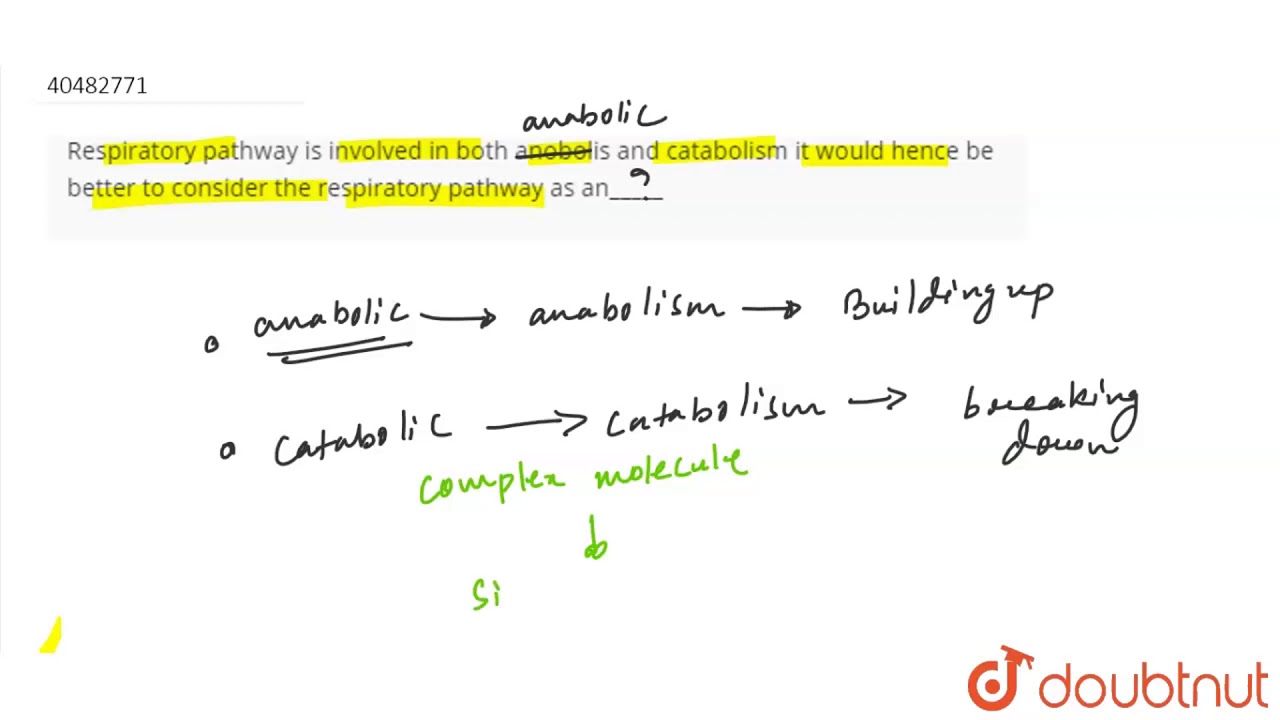 40482771
anabolic
Respiratory pathway is involved in both anobolis and catabolism it would hence be
better to consider the respiratory pathway as an_____
?
anabolic → anabolism → Building up
Catabolic → Catabolism → breaking
down
Complex molecule
Si
doubtnut